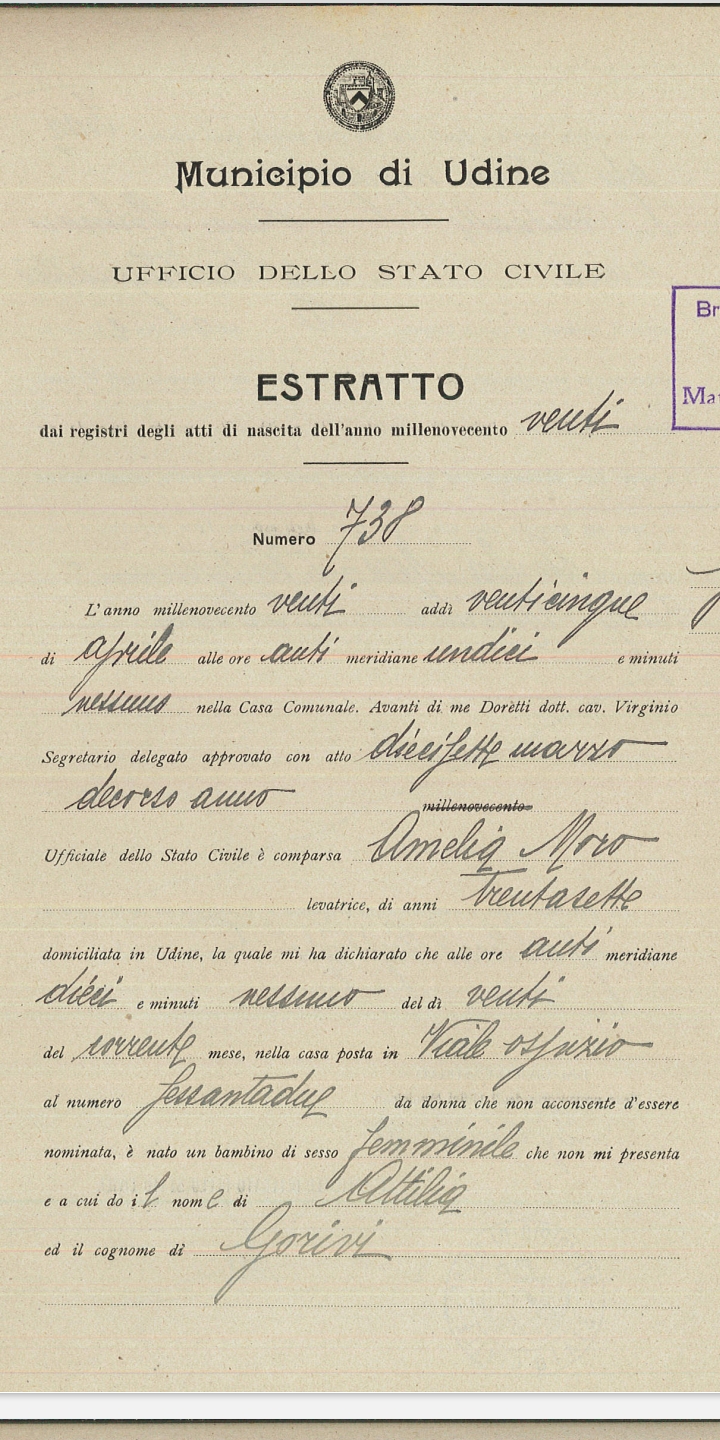 Municipio di Udine
UFFICIO DELLO STATO CIVILE
Br
Ma
ESTRATTO
dai registri degli atti di nascita dell'anno millenovecento venti
Numero 738
L'anno millenovecento venti addì venticinque
di aprile alle ore anti meridiane undici e minuti
nessuno nella Casa Comunale. Avanti di me Doretti dott. cav. Virginio
Segretario delegato approvato con atto diecisette marzo
decorso anno millenovecento
Ufficiale dello Stato Civile è comparsa Amelia Moro
levatrice, di anni trentasette
domiciliata in Udine, la quale mi ha dichiarato che alle ore anti meridiane
dieci e minuti nessuno del dì venti
del corrente mese, nella casa posta in Viale ospizio
al numero sessantadue da donna che non acconsente d'essere
nominata, è nato un bambino di sesso femminile che non mi presenta
e a cui do il nome di Attilia
ed il cognome di Gorivi